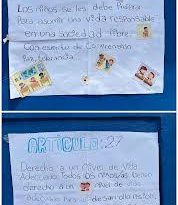 Los niños se les debe preparar
para asumir una vida responsable
en una Sociedad libre.
Con espíritu de
tolerancia.
ARTÍCULO:27
Derecho a un Nivel de Vida
Adecuado todos los niños/as tienen
derecho a un nivel de vida
desarrollo